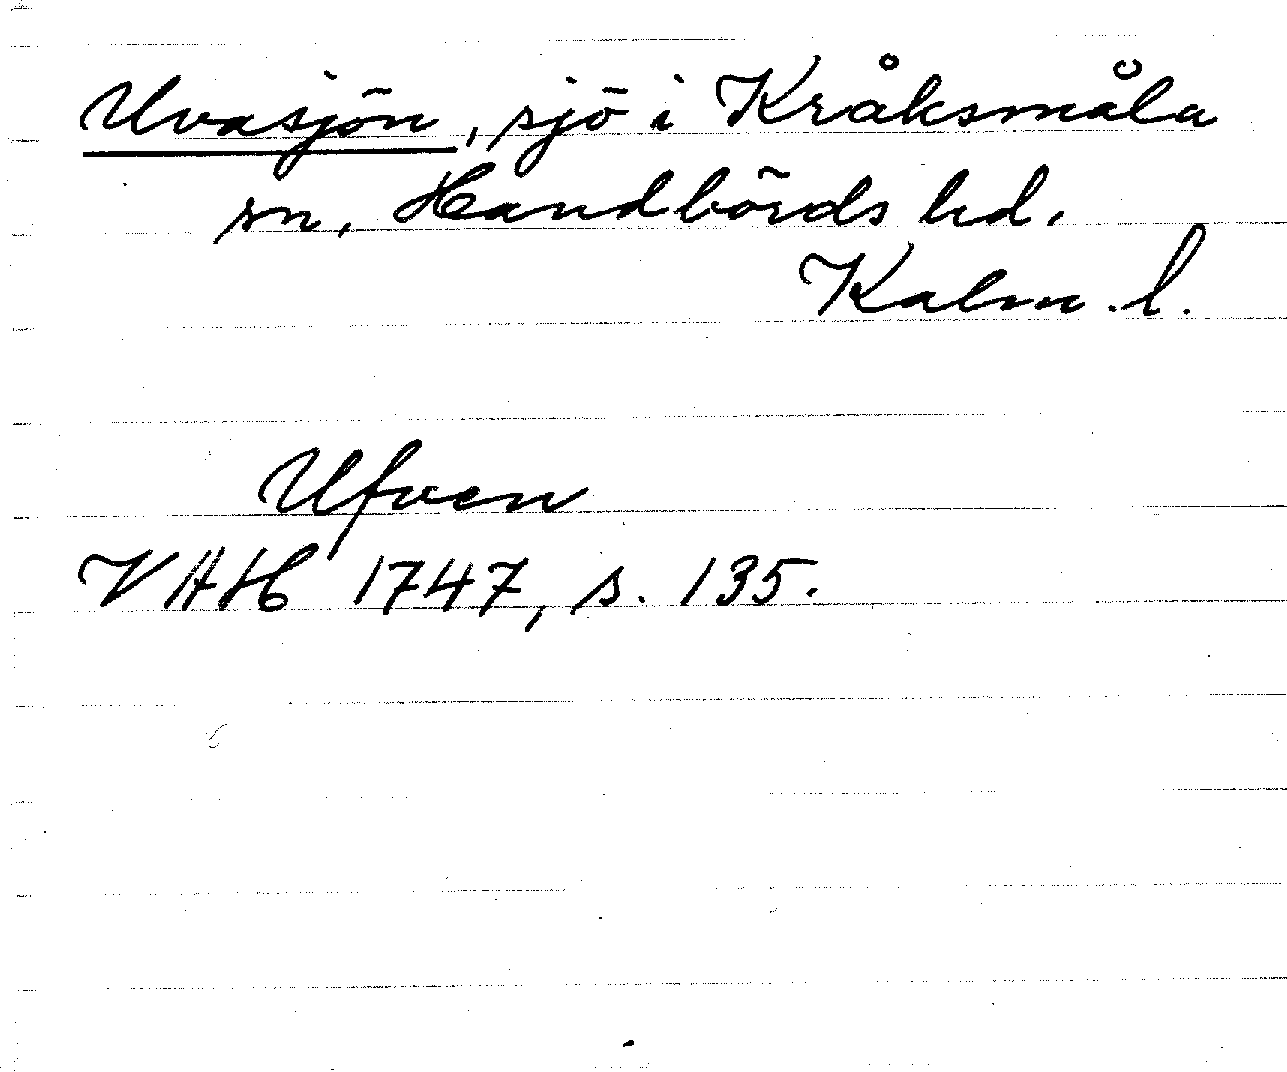 Uvasjön, sjö i Kråksmåla
sn, Handbörds hd.
Kalm. l.
Ufven
VAH 1747, s. 135.